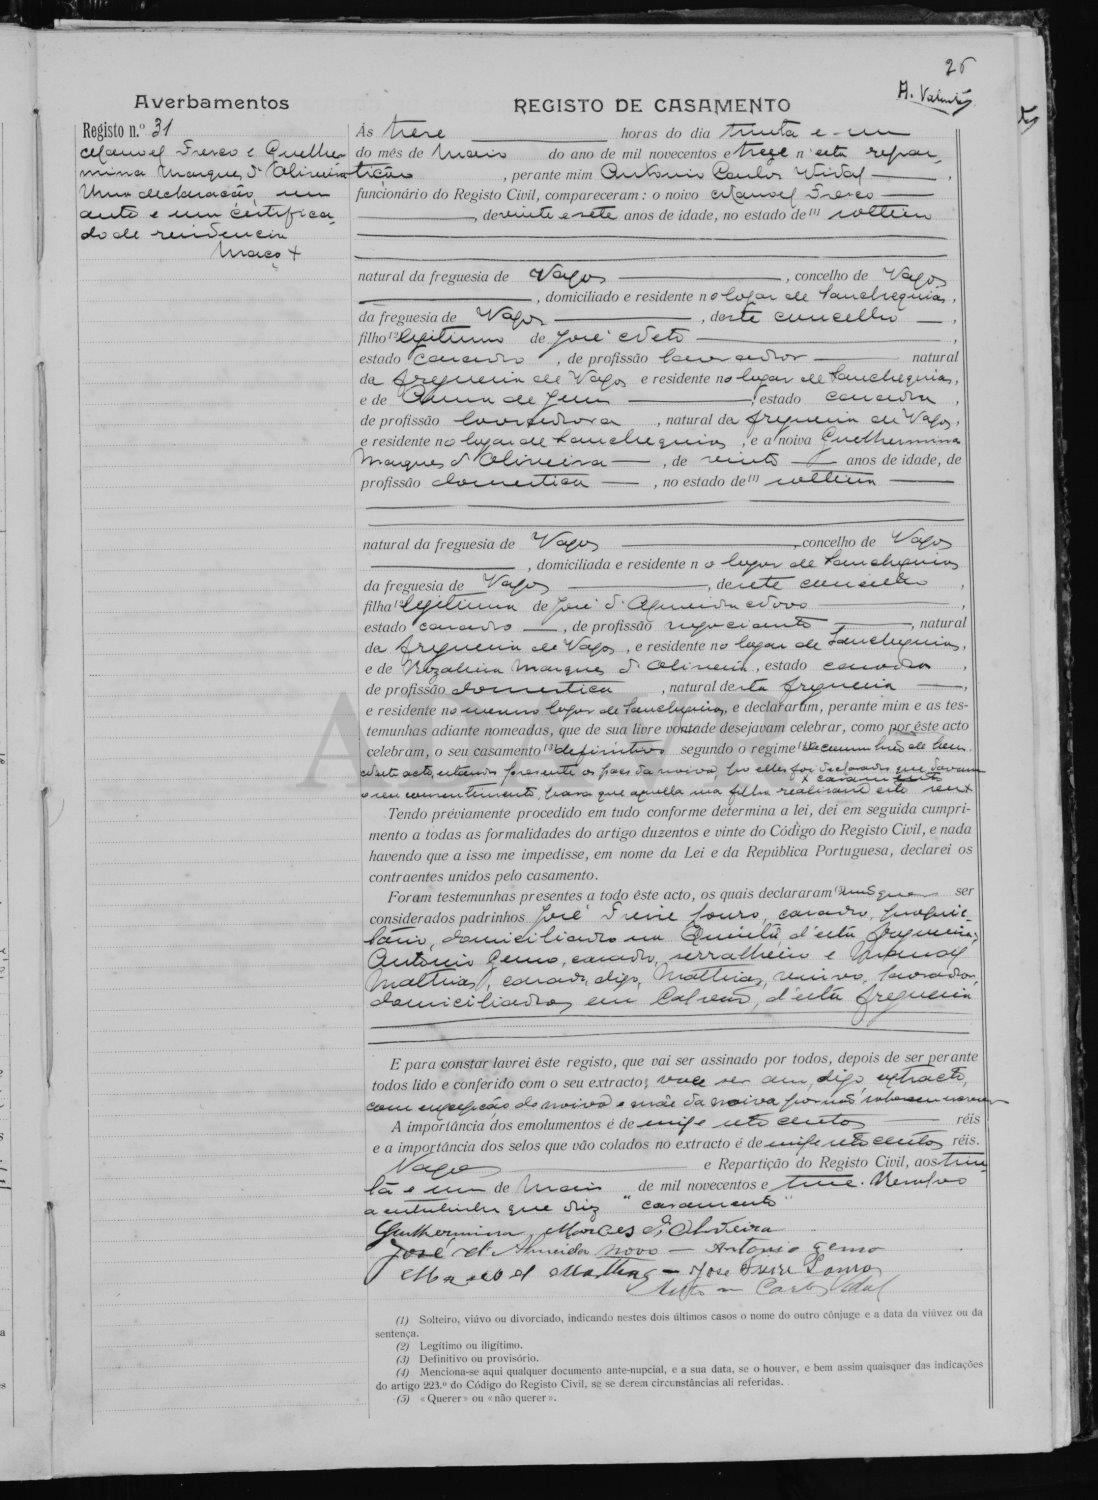 26
A. Valentim
Averbamentos
REGISTO DE CASAMENTO
Registo n.º 31
Manoel Fresco e Guelher
mina Marques d'Oliveira
Uma declaração, um
auto e um certifica-
do de residencia
Maço
Ás treze horas do dia trinta e um
do mês de Maio do ano de mil novecentos e treze n'esta repar-
tição, perante mim Antonio Carlos Vidal
funcionário do Registo Civil, compareceram: o noivo Manoel Fresco
, de vinte e sete anos de idade, no estado de (1) solteiro
natural da freguesia de Vagos, concelho de Vagos
, domiciliado e residente no logar de Sanchequias,
da freguesia de Vagos, deste concelho,
filho (2) legitimo de José Neto
estado casado, de profissão lavrador natural
da freguesia de Vagos e residente no logar de Sanchequias,
e de Anna de Jesus, estado casada,
de profissão lavradora, natural da freguesia de Vagos,
e residente no logar de Sanchequias, e a noiva Guelhermina
Marques d'Oliveira, de vinte anos de idade, de
profissão domestica, no estado de (1) solteira
natural da freguesia de Vagos, concelho de Vagos
, domiciliada e residente no logar de Sanchequias
da freguesia de Vagos, deste concelho,
filha (2) legitima de José d'Almeida Novo,
estado casado, de profissão negociante, natural
da freguesia de Vagos, e residente no logar de Sanchequias,
e de Rozalina Marques d'Oliveira, estado casada,
de profissão domestica, natural desta freguesia,
e residente no mesmo logar de Sanchequias, e declararam, perante mim e as tes-
temunhas adiante nomeadas, que de sua livre vontade desejavam celebrar, como por êste acto
celebram, o seu casamento (3) definitivo segundo o regime (4) de comunhão de bens.
Neste acto, estando presente os paes da noiva, por elles foi declarado que davam
casamento
o seu consentimento, para que aquella sua filha realisasse este seu
Tendo préviamente procedido em tudo conforme determina a lei, dei em seguida cumpri-
mento a todas as formalidades do artigo duzentos e vinte do Código do Registo Civil, e nada
havendo que a isso me impedisse, em nome da Lei e da República Portuguesa, declarei os
contraentes unidos pelo casamento.
Foram testemunhas presentes a todo êste acto, os quais declararam ser
considerados padrinhos José Freire Louro, casado, proprie-
tário, domiciliado na Quintã, d'esta freguesia,
Antonio Gemo, casado, serralheiro e Manoel
Mathias, casado, digo, Mathias, viuvo, lavrador,
domiciliados em Calvão, d'esta freguesia
E para constar lavrei êste registo, que vai ser assinado por todos, depois de ser perante
todos lido e conferido com o seu extracto, digo, extracto,
com excepção do noivo e mãe da noiva por não saberem escrever
A importância dos emolumentos é de réis
e a importância dos selos que vão colados no extracto é de réis.
Vagos e Repartição do Registo Civil, aos trin-
ta e um de Maio de mil novecentos e treze. Resalvo
a entrelinha que diz "casamento"
Guilhermina Marques d'Oliveira
José d'Almeida Novo — Antonio Gemo
Manoel Mathias — Jose Freire Louro
Antonio Carlos Vidal
(1) Solteiro, viúvo ou divorciado, indicando nestes dois últimos casos o nome do outro cônjuge e a data da viúvez ou da
sentença.
(2) Legítimo ou iligítimo.
(3) Definitivo ou provisório.
(4) Menciona-se aqui qualquer documento ante-nupcial, e a sua data, se o houver, e bem assim quaisquer das indicações
do artigo 223.º do Código do Registo Civil, se se derem circunstâncias ali referidas.
(5) «Querer» ou «não querer».